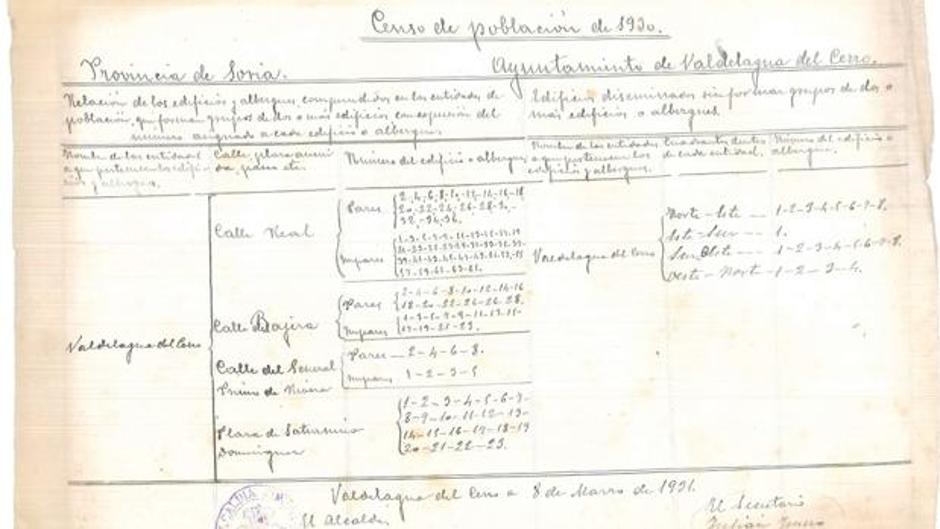 Censo de población de 1930.
Provincia de Soria.
Ayuntamiento de Valdelagua del Cerro.
Relación de los edificios y albergues, comprendidos en las entidades de
población, que forman grupos de dos o más edificios con expresión del
número asignado a cada edificio o albergue.
Edificios diseminados sin formar grupos de dos o
más edificios o albergues.
Nombre de las entidades
a que pertenecen los edifi-
cios y albergues.
Calle, plaza
Número del edificio o albergue
Nombre de las entidades
a que pertenecen los
edificios y albergues.
Cuadrantes dentro
de cada entidad.
Número del edificio o
albergue.
Valdelagua del Cerro
Calle Real
Pares
2-4-6-8-10-12-14-16-18
20-22-24-26-28-30-
32-34-36.
Impares
Calle Bajera
Pares
2-4-6-8-10-12-14-16
18-20-22-24-26-28.
Impares
1-3-5-7-9-11-13-15-
17-19-21-23.
Calle del General
Primo de Rivera
Pares — 2-4-6-8.
Impares 1-2-3-5
Plaza de Saturnino
Dominguez
1-2-3-4-5-6-7-
8-9-10-11-12-13-
14-15-16-17-18-19
20-21-22-23.
Valdelagua del Cerro
Norte-Este — 1-2-3-4-5-6-7-8.
Este-Sur — 1.
Sur-Oeste — 1-2-3-4-5-6-7-8.
Oeste-Norte — 1-2-3-4.
Valdelagua del Cerro a 8 de Marzo de 1931.
El Alcalde
El Secretario